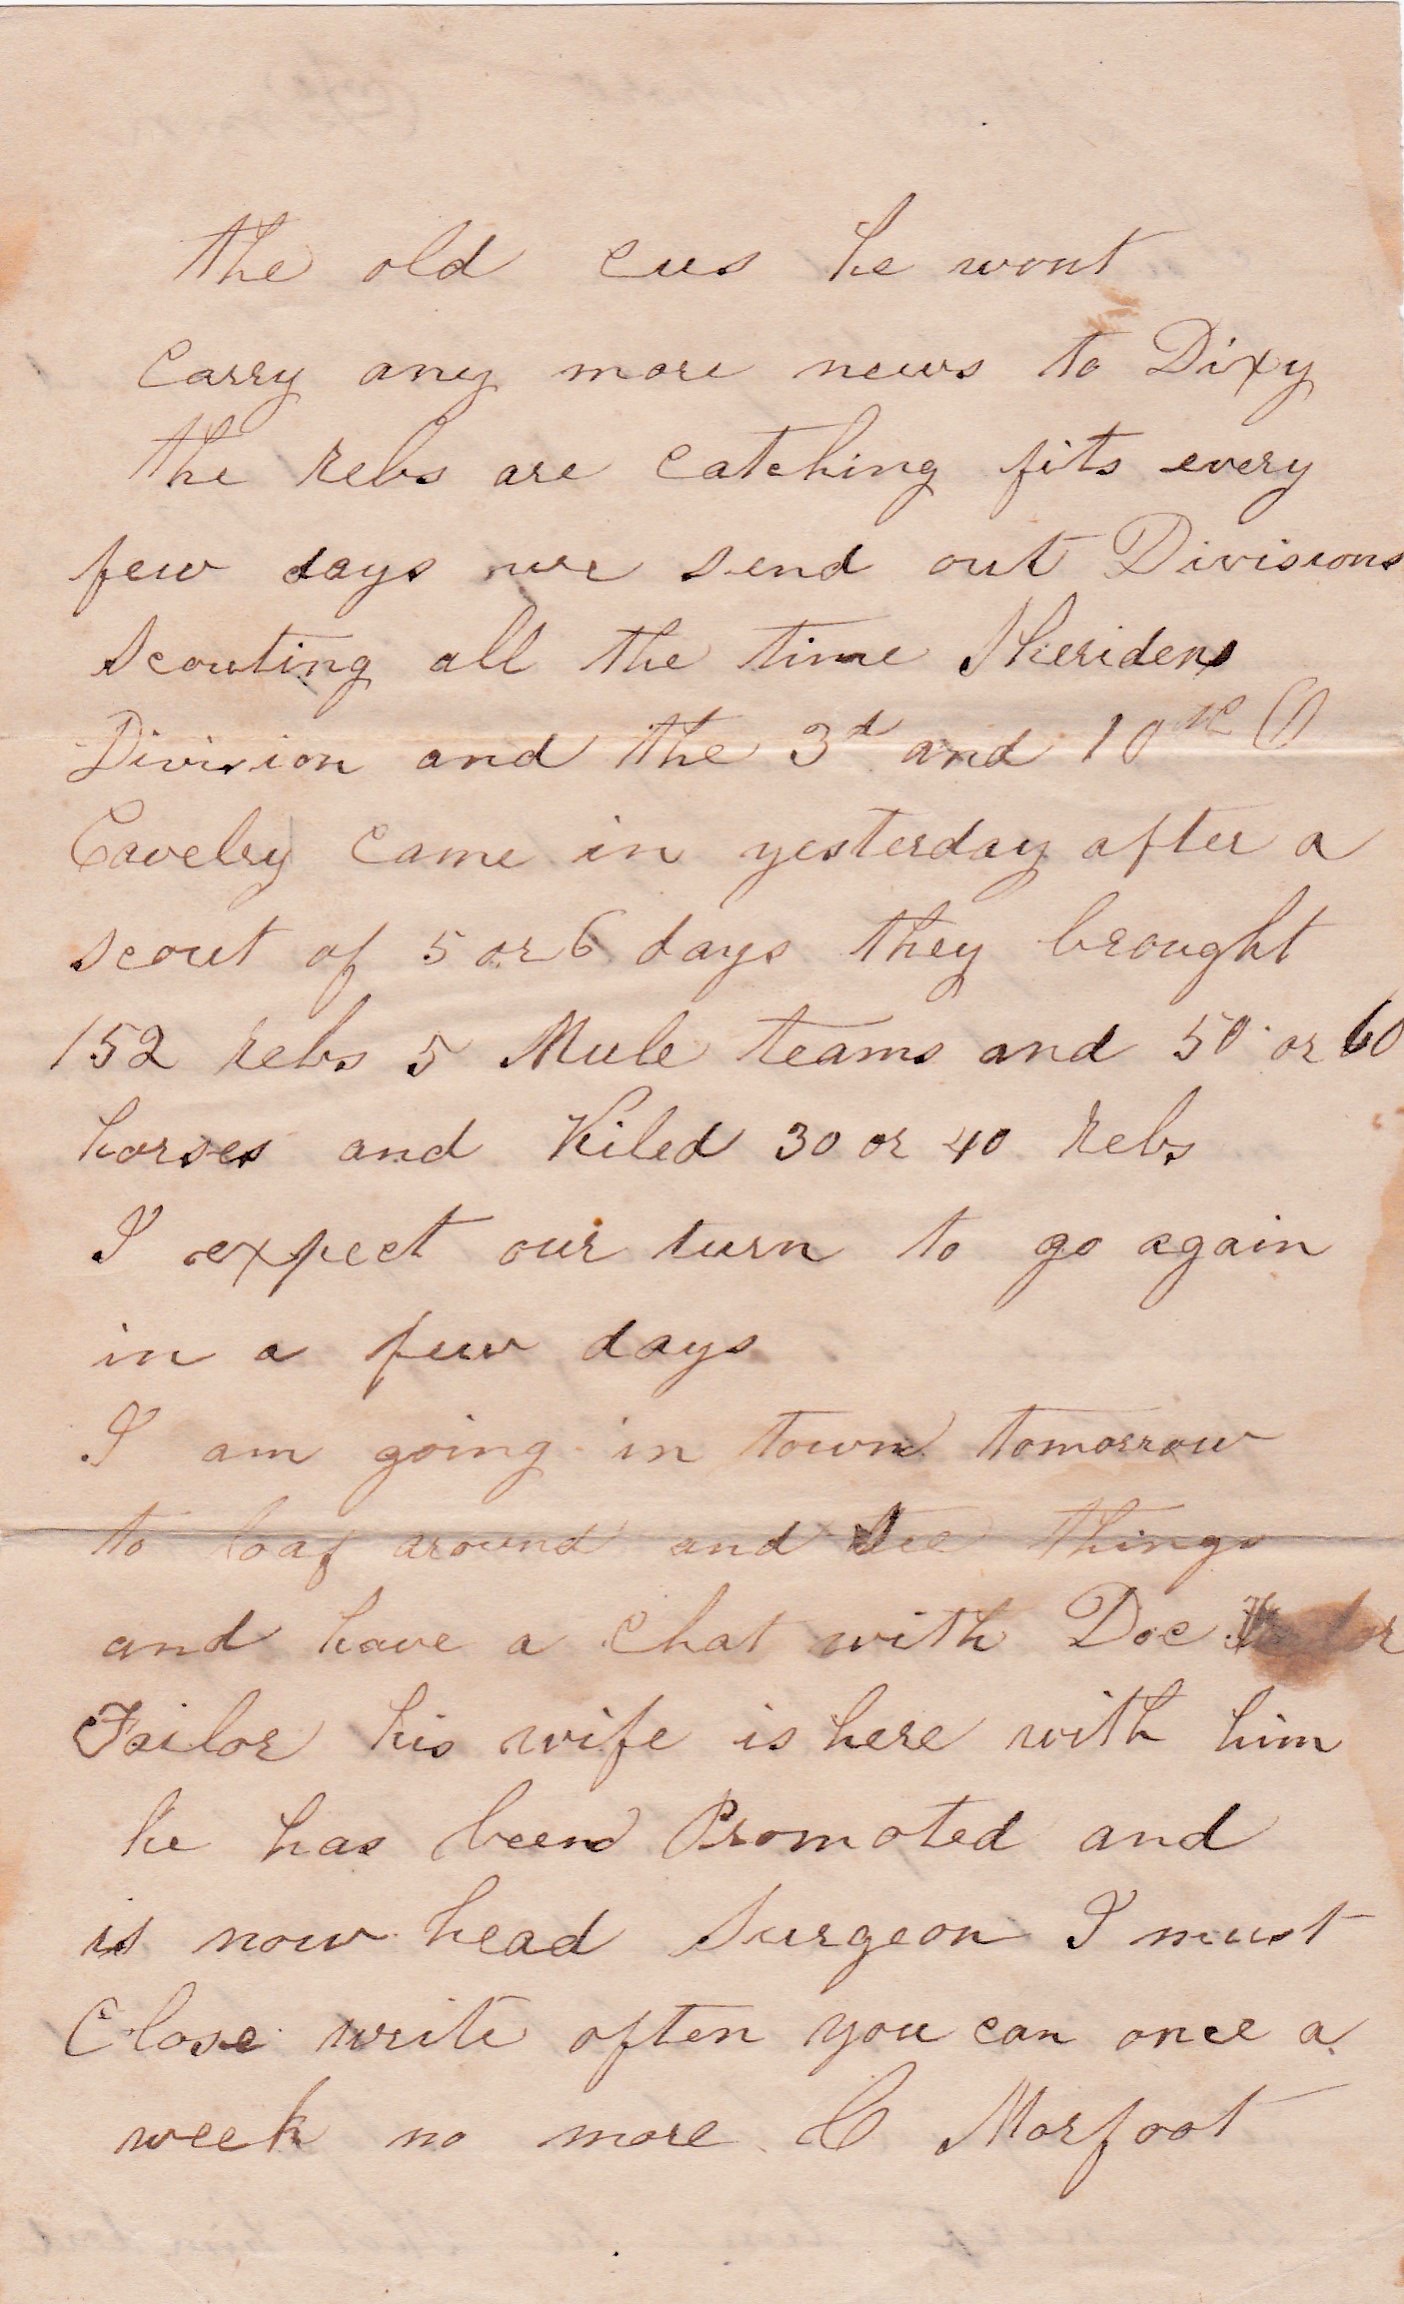 the old cus he wont
Carry any more news to Dixy
the rebs are catching fits every
few days we send out Divisions
Scouting all the time Sheridens
Division and the 3d and 10th O
Cavelry came in yesterday after a
scout of 5 or 6 days they brought
152 rebs 5 Mule teams and 50 or 60
horses and Kiled 30 or 40 rebs
I expect our turn to go again
in a few days
I am going in town tomorrow
to loaf around and see things
and have a chat with Doc
Tailor his wife is here with him
he has been Promoted and
is now head Surgeon I must
Close write often you can once a
week no more C Morfoot